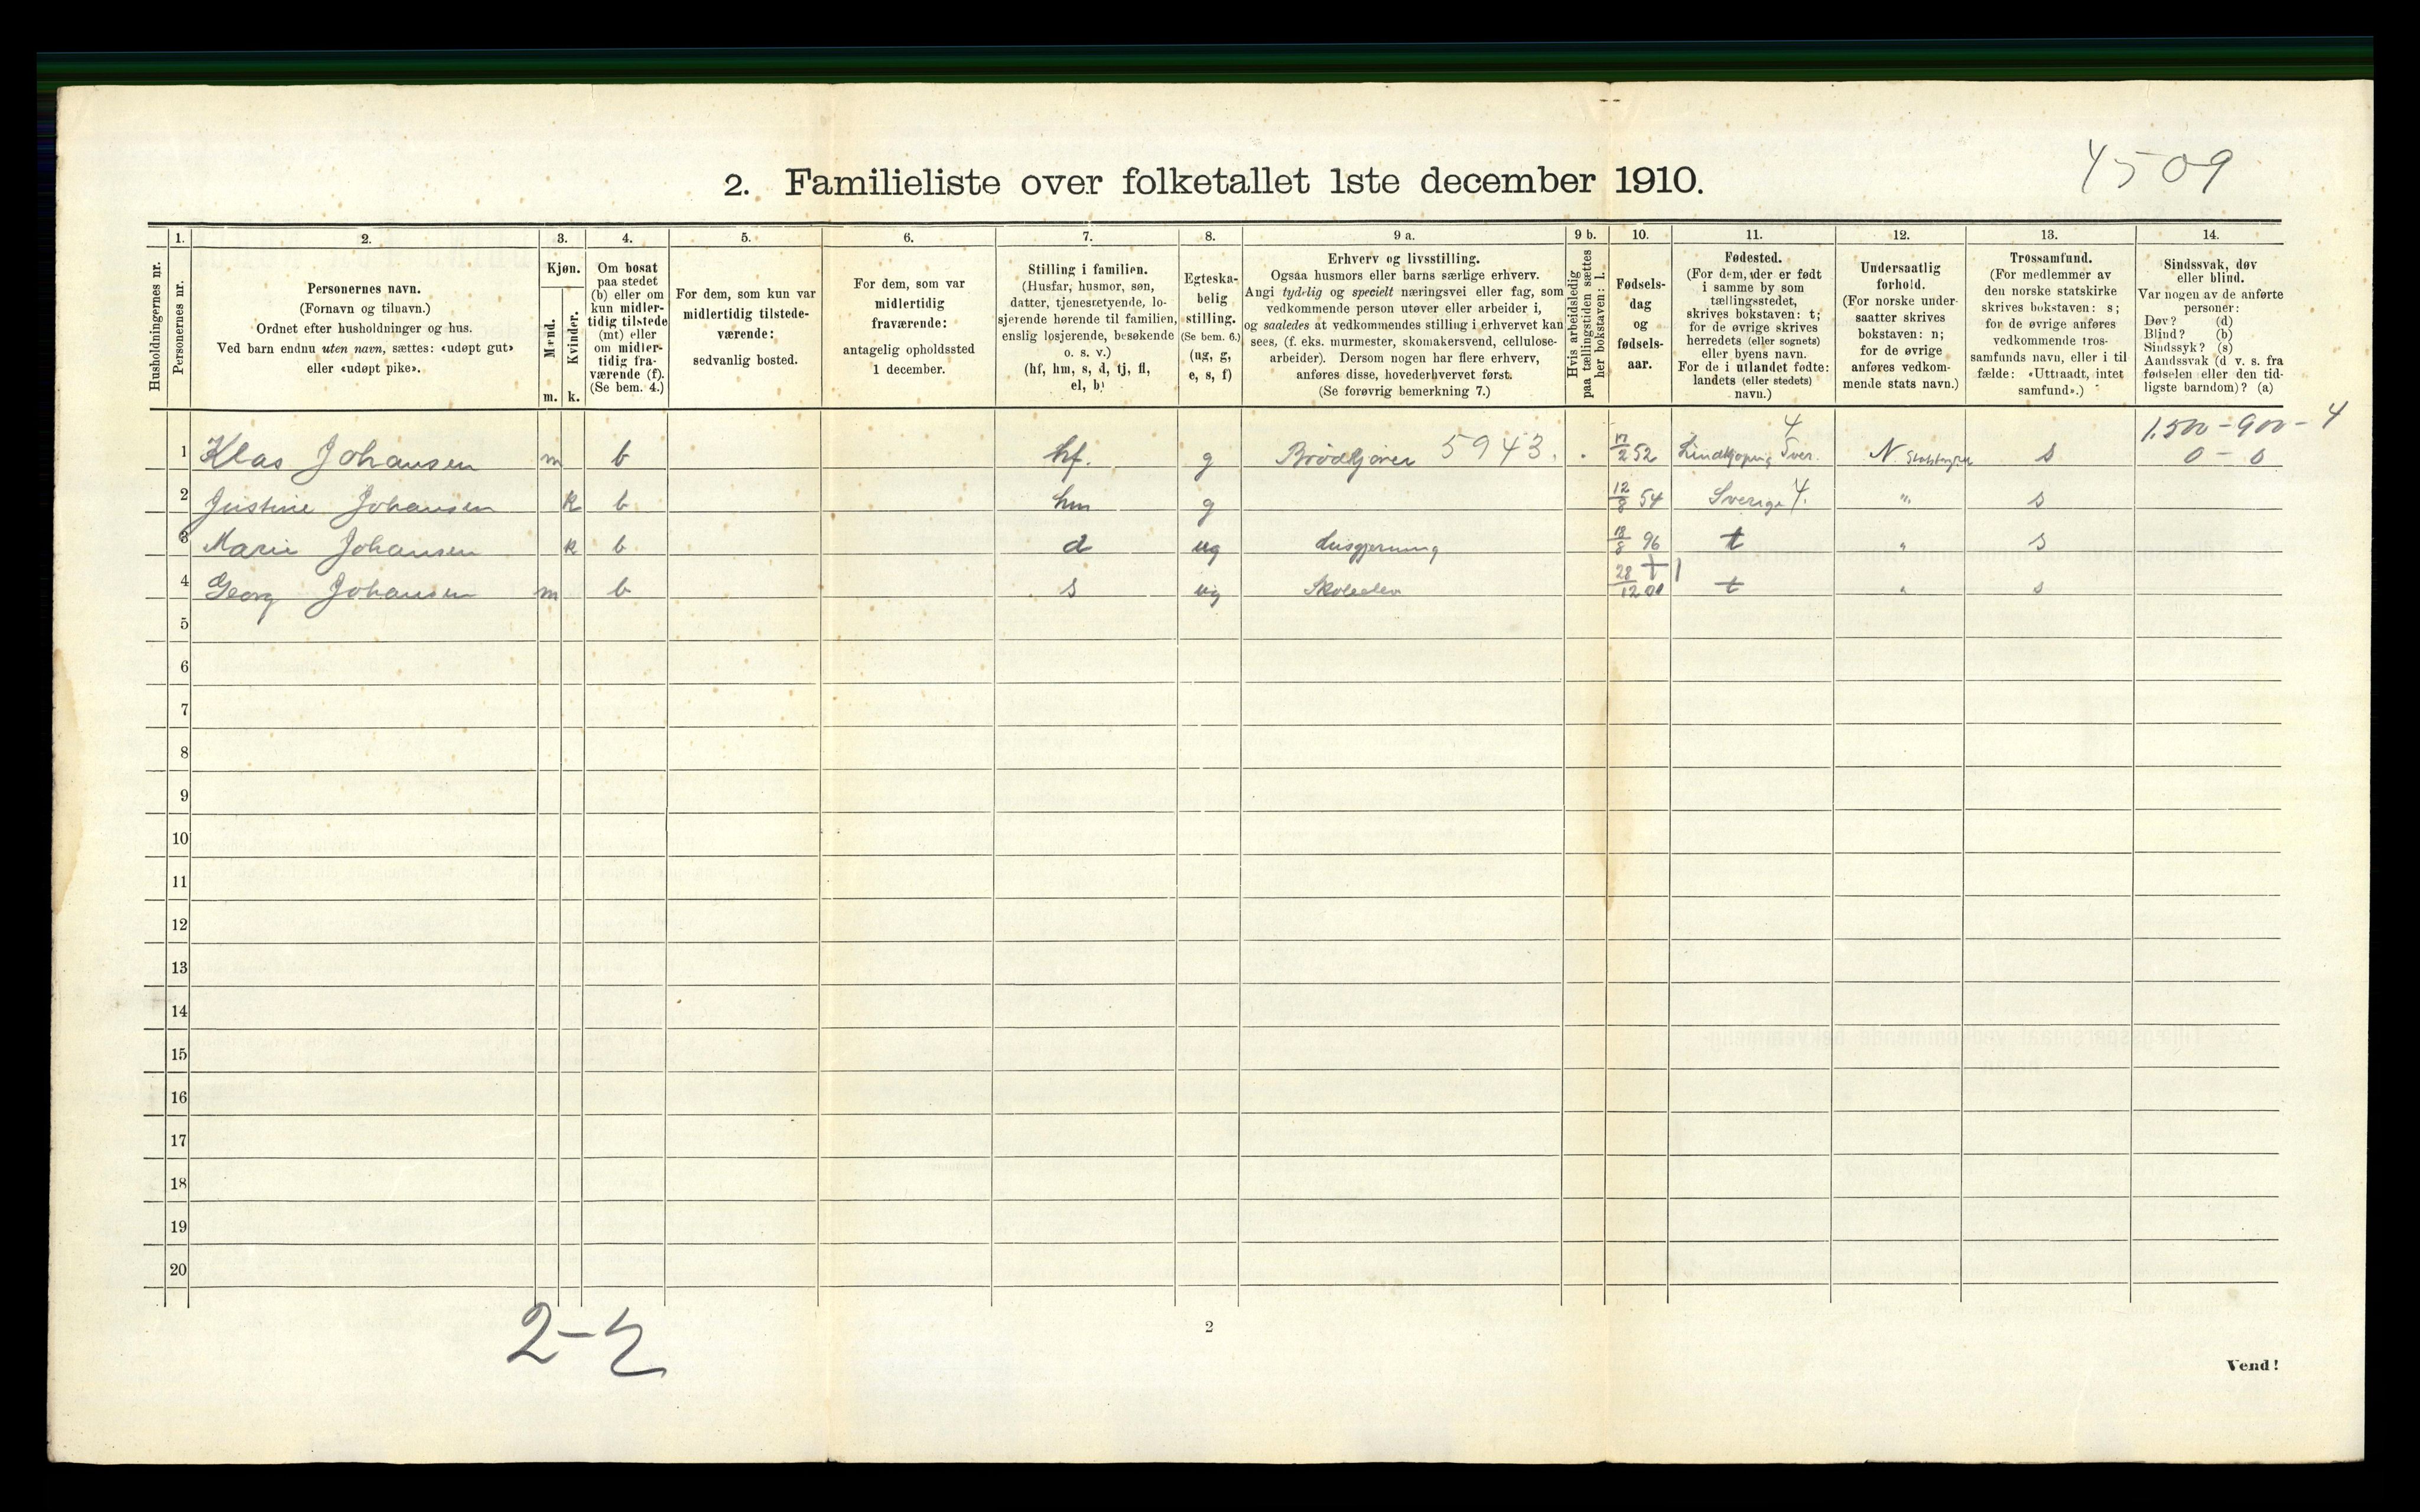 4509
2. Familieliste over folketallet 1ste december 1910.
Husholdningernes nr.
1. Personernes nr.
2. Personernes navn.
(Fornavn og tilnavn.)
Ordnet efter husholdninger og hus.
Ved barn endnu uten navn, sættes: «udøpt gut»
eller «udøpt pike».
3. Kjøn.
Mænd. m.
Kvinder. k.
4. Om bosat
paa stedet
(b) eller om
kun midler-
tidig tilstede
(mt) eller
om midler-
tidig fra-
værende (f).
(Se bem. 4.)
5. For dem, som kun var
midlertidig tilstede-
værende:
sedvanlig bosted.
6. For dem, som var
midlertidig
fraværende:
antagelig opholdssted
1 december.
7. Stilling i familien.
(Husfar, husmor, søn,
datter, tjenestetyende, lo-
sjerende hørende til familien,
enslig losjerende, besøkende
o. s. v.)
(hf, hm, s, d, tj, fl,
el, b)
8. Egteska-
belig
stilling.
(Se bem. 6.)
(ug, g,
e, s, f)
9 a. Erhverv og livsstilling.
Ogsaa husmors eller barns særlige erhverv.
Angi tydelig og specielt næringsvei eller fag, som
vedkommende person utøver eller arbeider i,
og saaledes at vedkommendes stilling i erhvervet kan
sees, (f. eks. murmester, skomakersvend, cellulose-
arbeider). Dersom nogen har flere erhverv,
anføres disse, hovederhvervet først.
(Se forøvrig bemerkning 7.)
9 b. Hvis arbeidsledig
paa tællingstiden sættes
her bokstaven: l.
10. Fødsels-
dag
og
fødsels-
aar.
11. Fødested.
(For dem, der er født
i samme by som
tællingsstedet,
skrives bokstaven: t;
for de øvrige skrives
herredets (eller sognets)
eller byens navn.
For de i utlandet fødte:
landets (eller stedets)
navn.)
12. Undersaatlig
forhold.
(For norske under-
saatter skrives
bokstaven: n;
for de øvrige
anføres vedkom-
mende stats navn.)
13. Trossamfund.
(For medlemmer av
den norske statskirke
skrives bokstaven: s;
for de øvrige anføres
vedkommende tros-
samfunds navn, eller i til-
fælde: «Uttraadt, intet
samfund».)
14. Sindssvak, døv
eller blind.
Var nogen av de anførte
personer:
Døv? (d)
Blind? (b)
Sindssyk? (s)
Aandssvak (d. v. s. fra
fødselen eller den tid-
ligste barndom)? (a)
1.500 - 900 - 4
1 Klas Johansen m b hf. g Brødkjører 5943. 17/2 52 Lindkjøping Sver. 4 N s 0 - 0
2 Justine Johansen k b hm g 12/8 54 Sverige 4. " s
3 Marie Johansen k b d ug Husgjerning 18/8 96 t " s
4 Georg Johansen m b s ug Skoleelev 28/12 01 t " s
5
6
7
8
9
10
11
12
13
14
15
16
17
18
19
20
2-2
2
Vend!